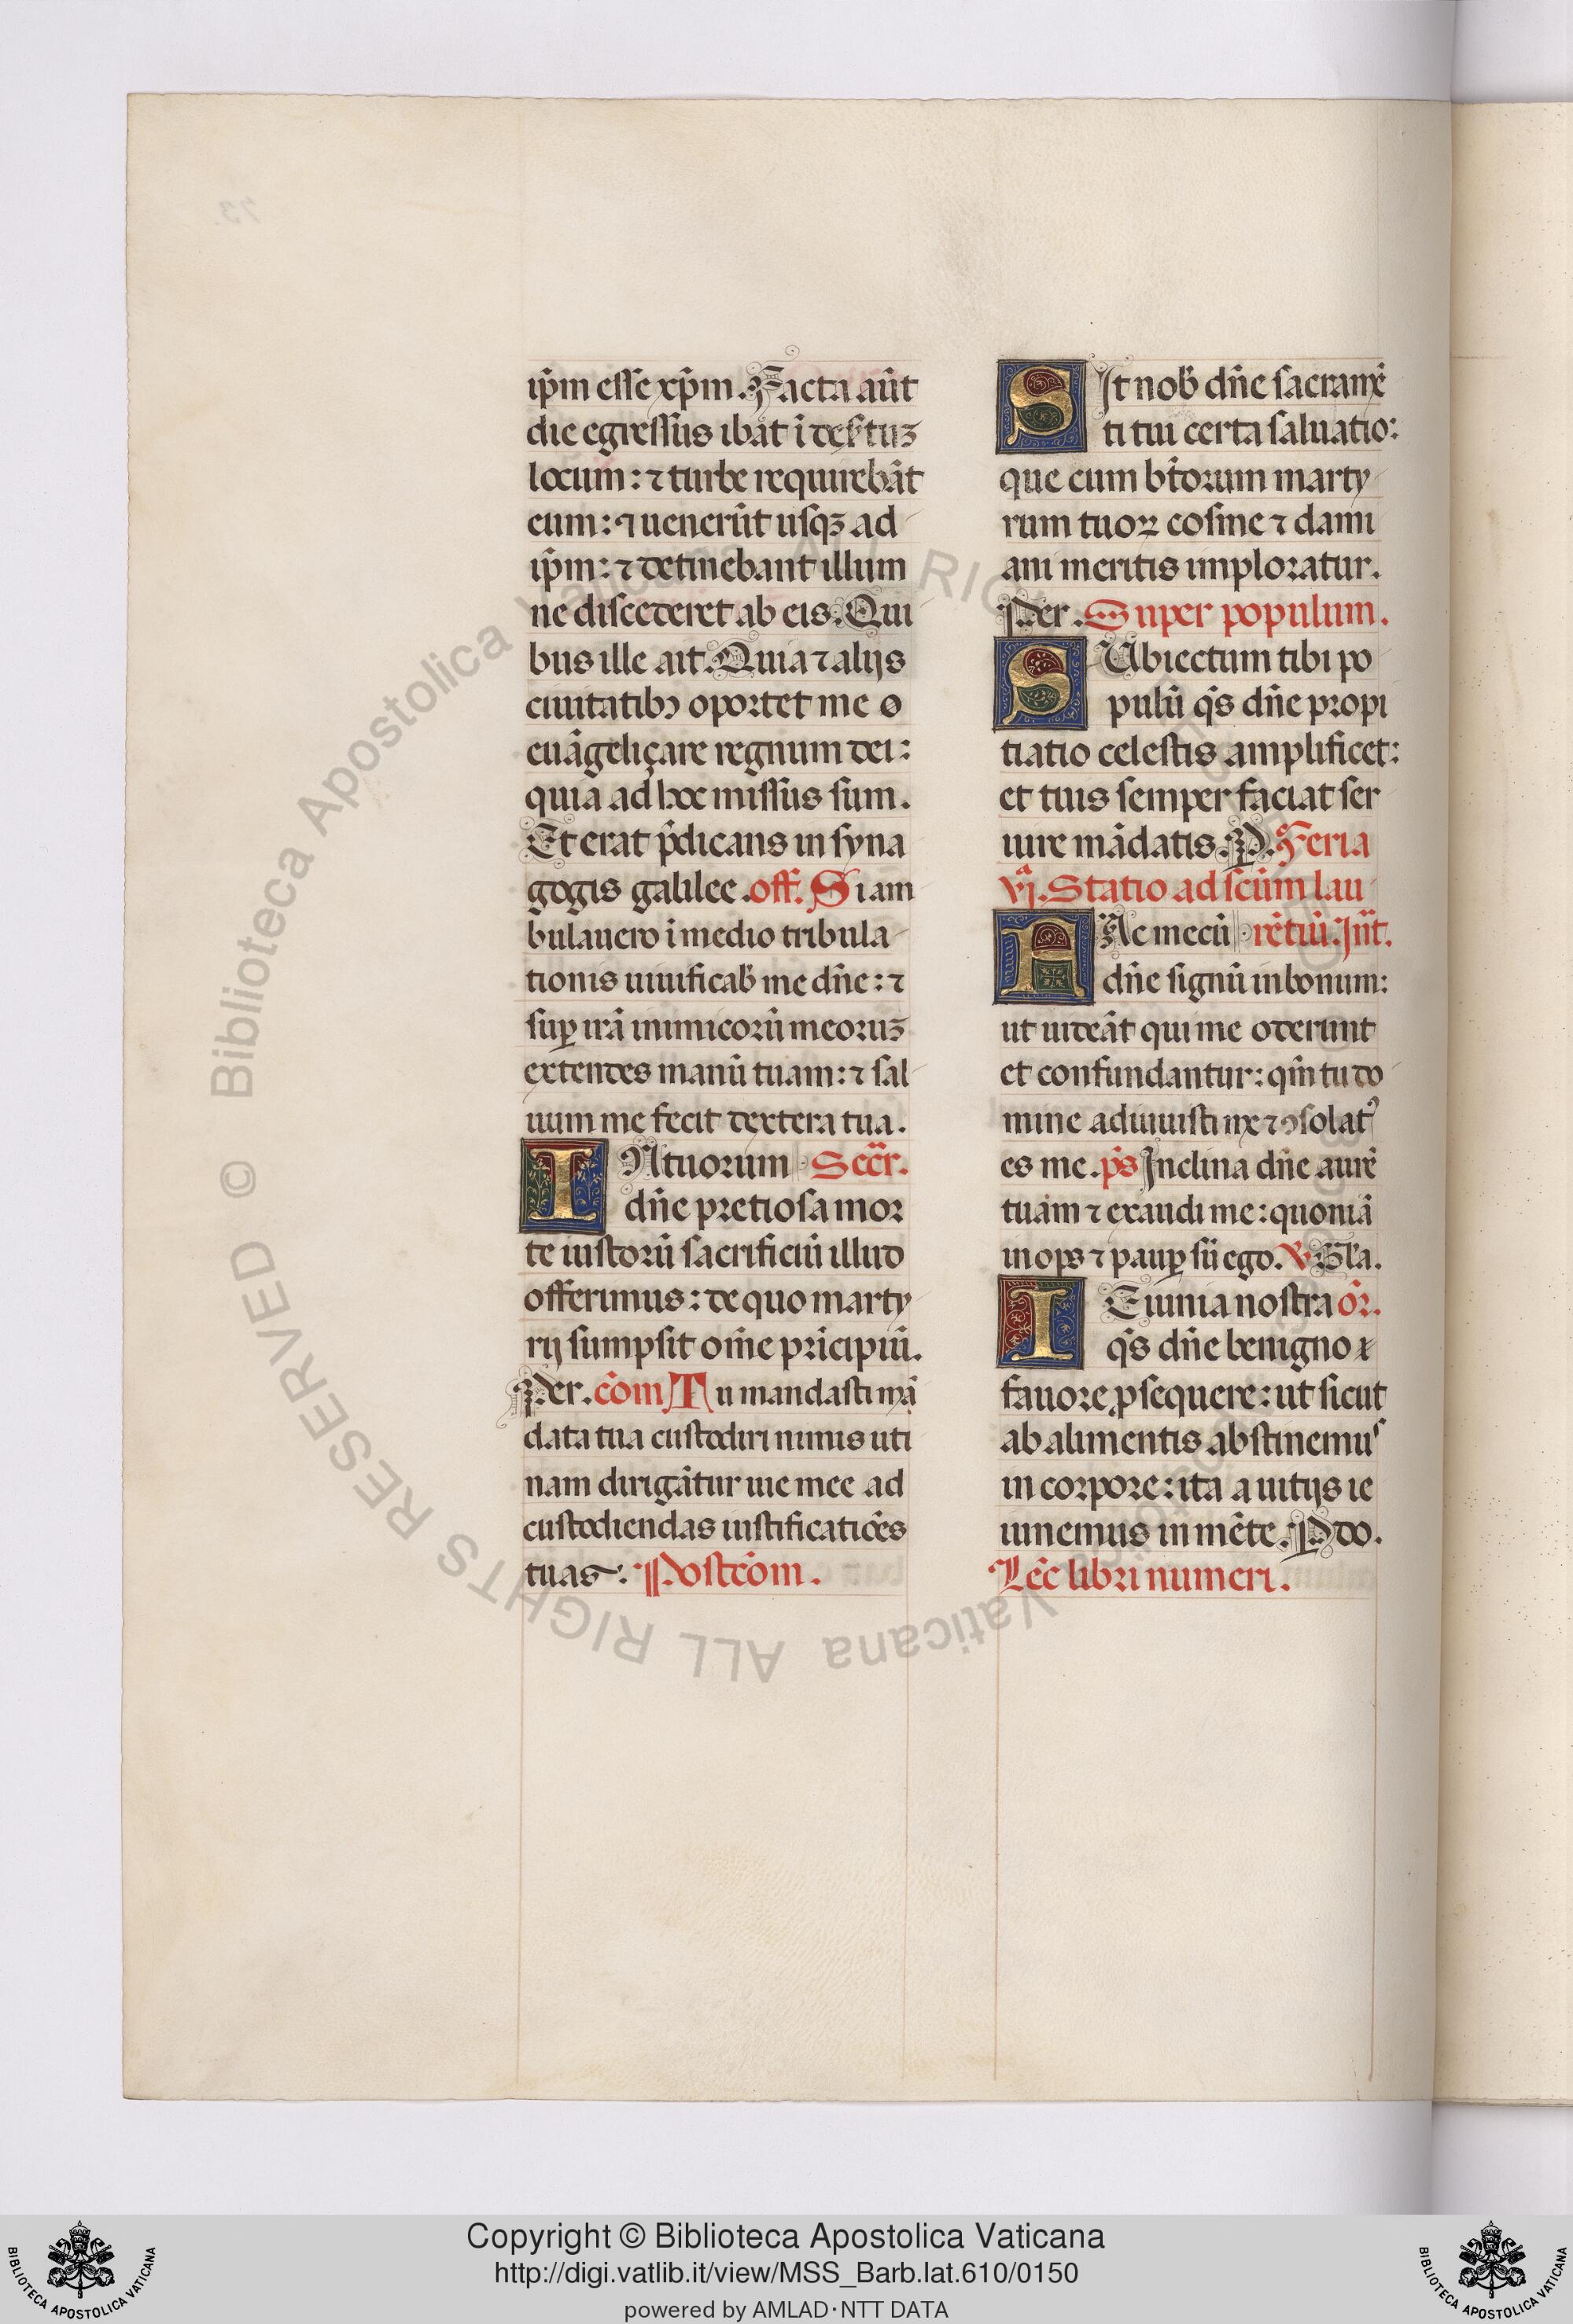 ip̄m esse xp̄m. Facta aūt
die egressus ibāt ī deẜtuꝫ
locum: ⁊ turbe requirebāt
eum: ⁊ uenerūt usqꝫ ad
ip̄m: ⁊ detinebant illum
ne discederet ab eis. Qui
bus ille ait. Quia ⁊ alijs
ciuitatibꝰ oportet me
euāgeliçare regnum dei:
quia ad hoc missus sum.
Et erat p̄dicans in syna
gogis galilee. off. Si am
bulauero ī medio tribula
tionis uiuificab̄ me dn̄e: ⁊
suꝑ irā inimicorū meoruꝫ
extendes manū tuam: ⁊ sal
uum me fecit dextera tua.
IN tuorum Secr̄.
dn̄e pretiosa mor
te iustorū sacrificiū illud
offerimus: de quo marty
rij sumpsit om̄e prīcipiū.
Per. cōm Tu mandasti mā
data tua custodiri nimis uti
nam dirigātur uie mee ad
custodiendas iustificatiōes
tuas. Postcōm.
SIt nob̄ dn̄e sacramē
ti tui certa saluatio:
que cum bt̄orum marty
rum tuoꝝ cosme ⁊ dami
ani meritis imploratur.
Per. Super populum.
SUbiectum tibi po
pulū qs̄ dn̄e propi
tiatio celestis amplificet:
et tuis semper faciat ser
uire mādatis. P. Feria
vj.ᵃ Statio ad sc̄um lau
FAc mecū rētiū. Int̄.
dn̄e signū in bonum:
ut uideāt qui me oderunt
et confundantur: qm̄ tu do
mine adiuuisti me ⁊ ꝯsolatꝰ
es me. ps̄ Inclina dn̄e aurē
tuam ⁊ exaudi me: quoniā
inops ⁊ pauꝑ sū ego. v. Gl̄a.
IEiunia nostra or̄.
qs̄ dn̄e benigno
fauore ꝓsequere: ut sicut
ab alimentis abstinemus
in corpore: ita a uitijs ie
iunemus in mēte. P do.
Lec̄ libri numeri.
© Biblioteca Apostolica Vaticana ALL RIGHTS RESERVED
Copyright © Biblioteca Apostolica Vaticana
http://digi.vatlib.it/view/MSS_Barb.lat.610/0150
powered by AMLAD·NTT DATA
BIBLIOTECA APOSTOLICA VATICANA
BIBLIOTECA APOSTOLICA VATICANA